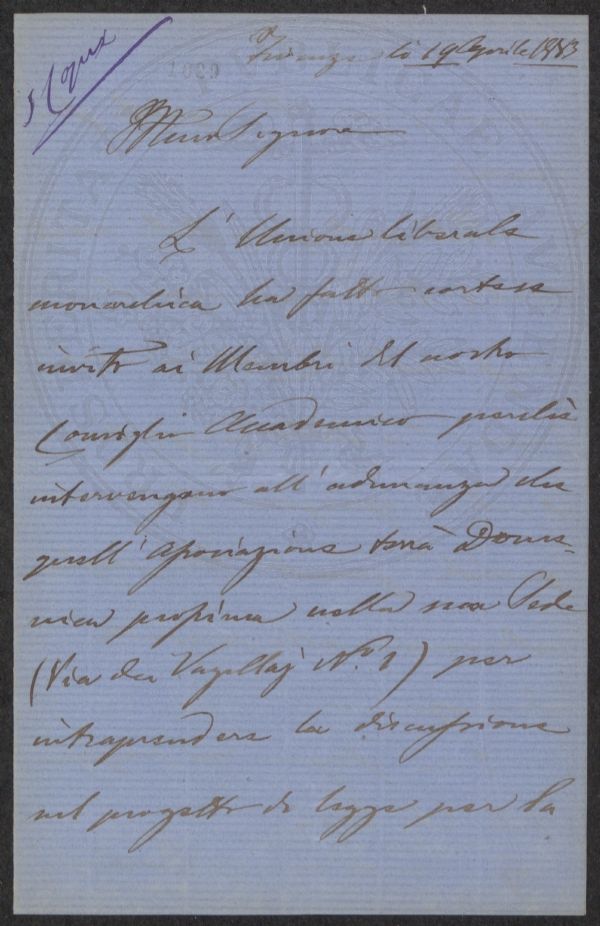 Firenze li 19 Aprile 1883
Illmo Signore
L'Unione liberale
monarchica ha fatto cortese
invito ai Membri del nostro
Consiglio Accademico perché
intervengano all'adunanza che
quell'Associazione terrà Dome=
nica prossima nella sua Sede
(Via dei Vagellaj N.° 1) per
intraprendere la discussione
sul progetto di legge per la